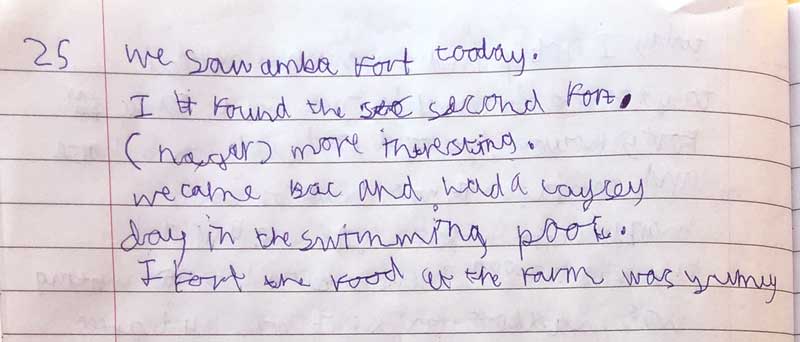 25 we saw amba fort today.
I found the second fort.
(nager) more intresting.
we came bac and had a laysey
day in the swimming pool.
I fort the food at the farm was yumy